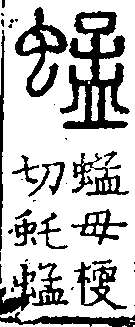 蜢
蜢毋梗
切虴蜢